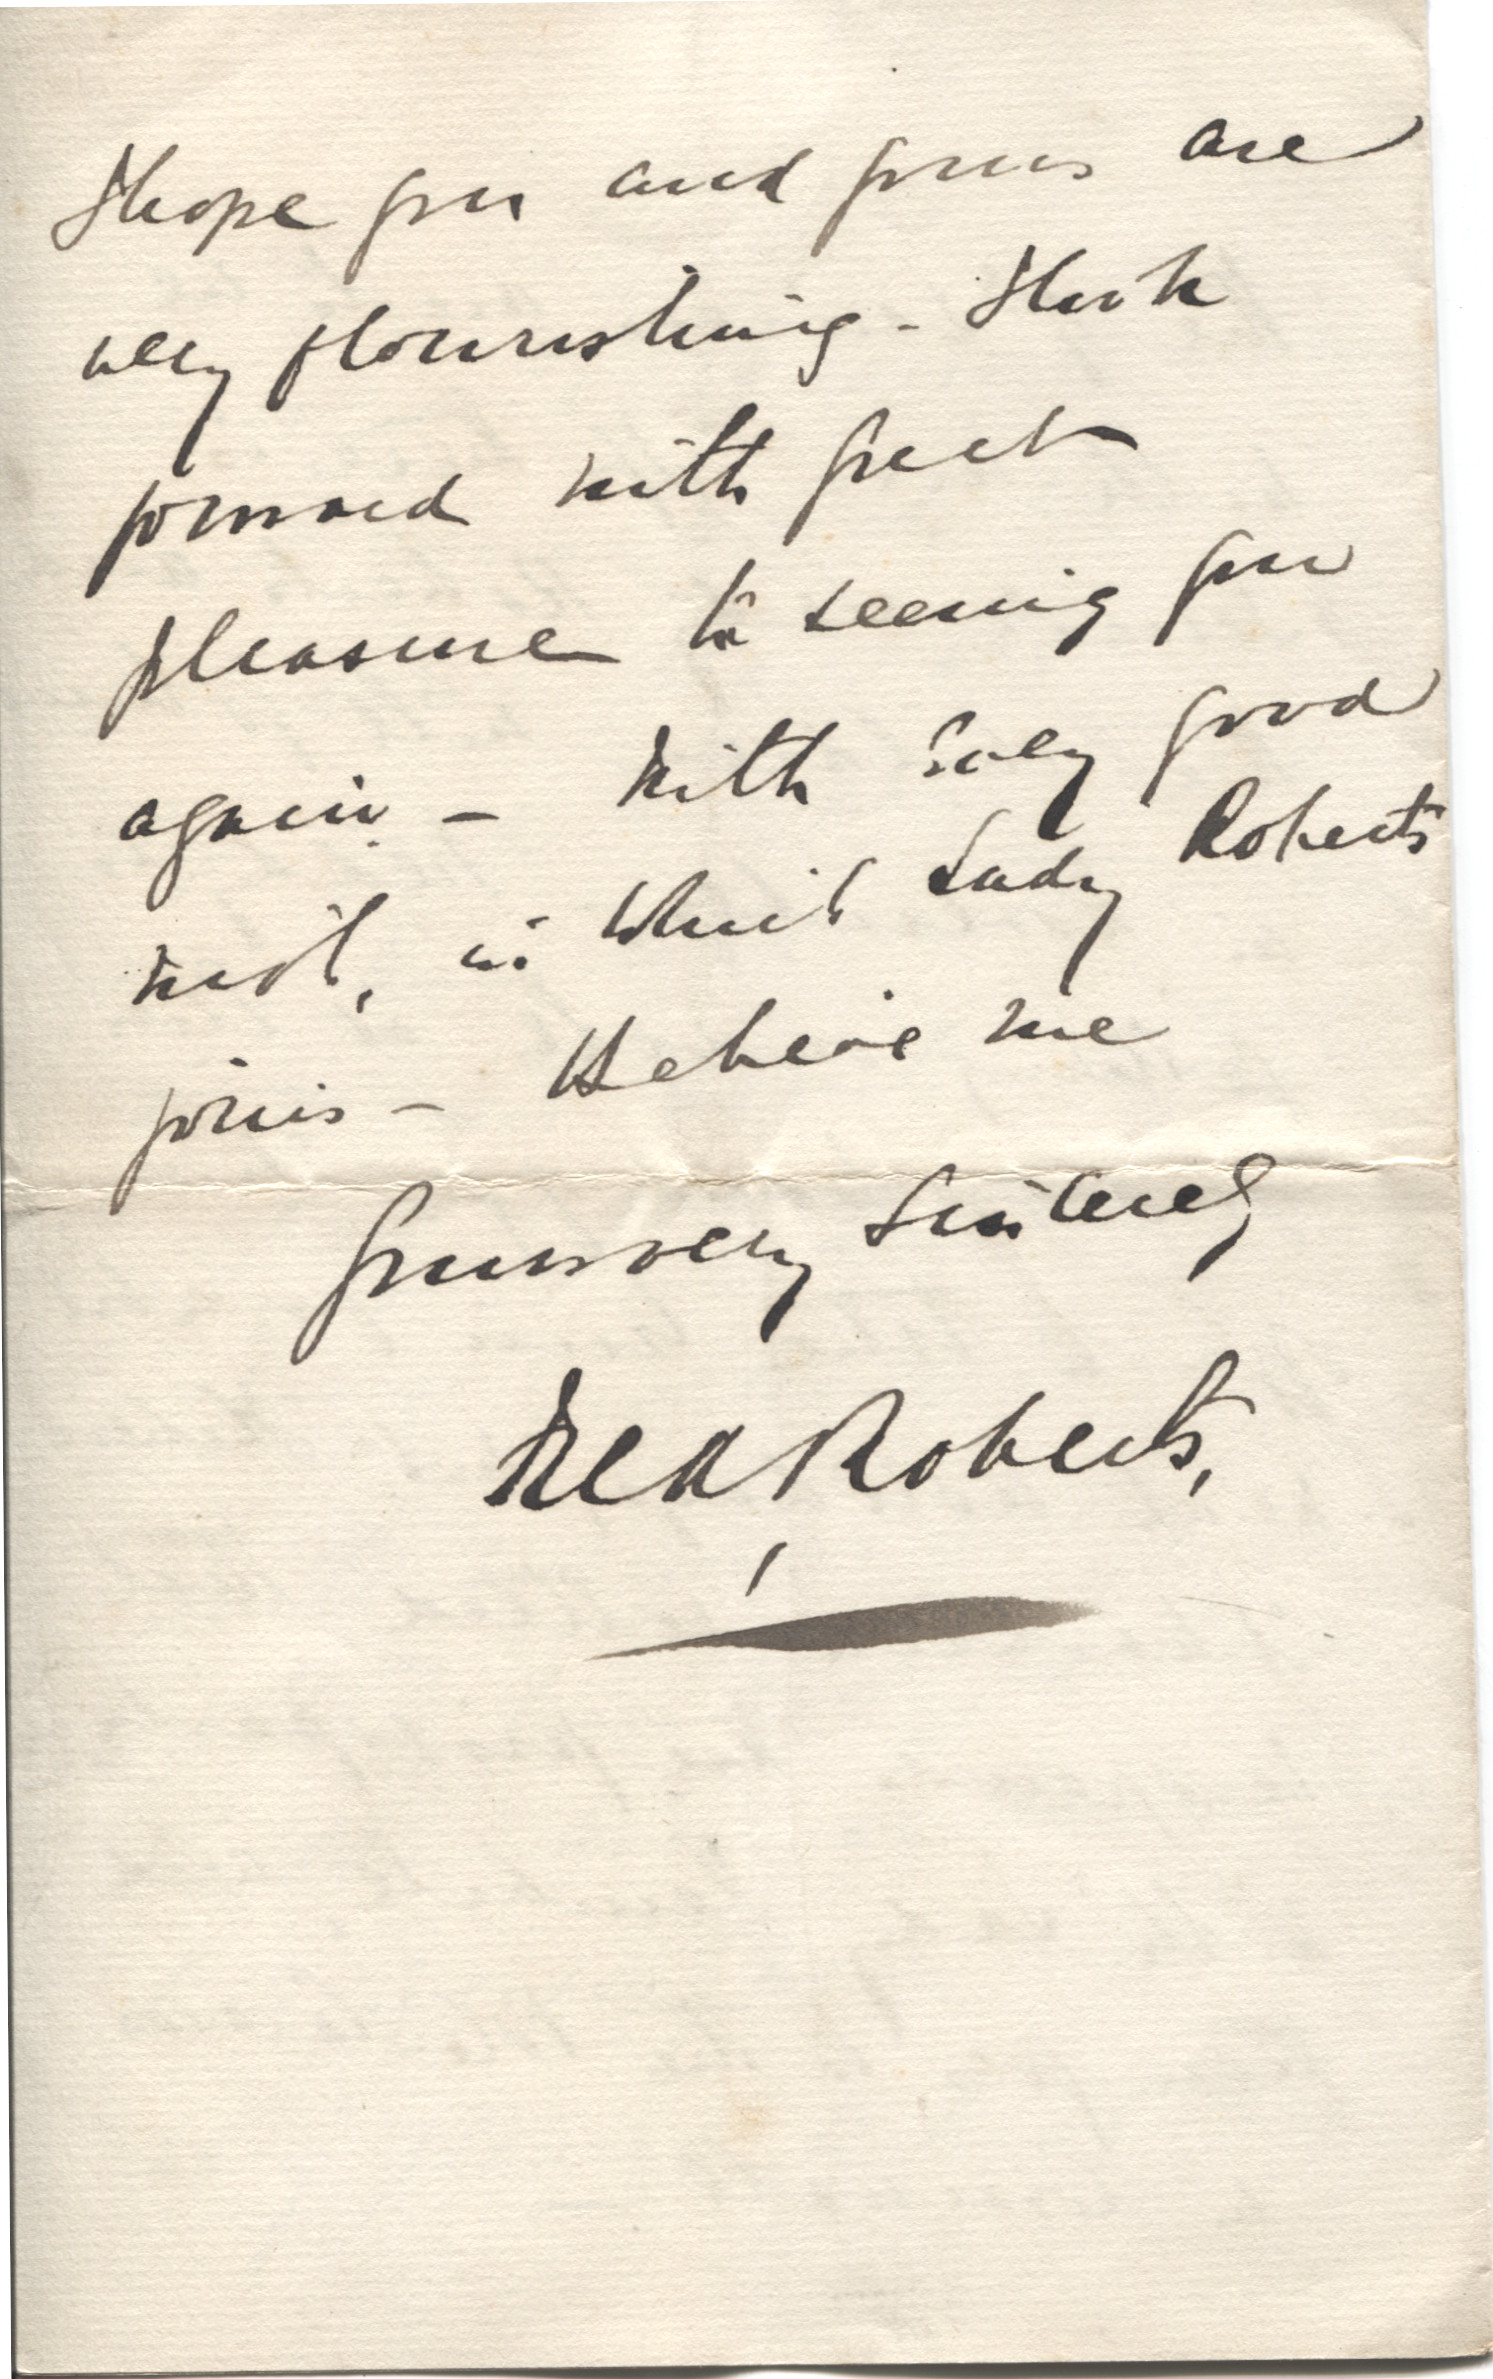 I hope you and yours are
very flourishing - I look
forward with great
pleasure to seeing you
again - With every good
wish, in which Lady Roberts
joins - Believe me
Yours very sincerely
Fred Roberts,